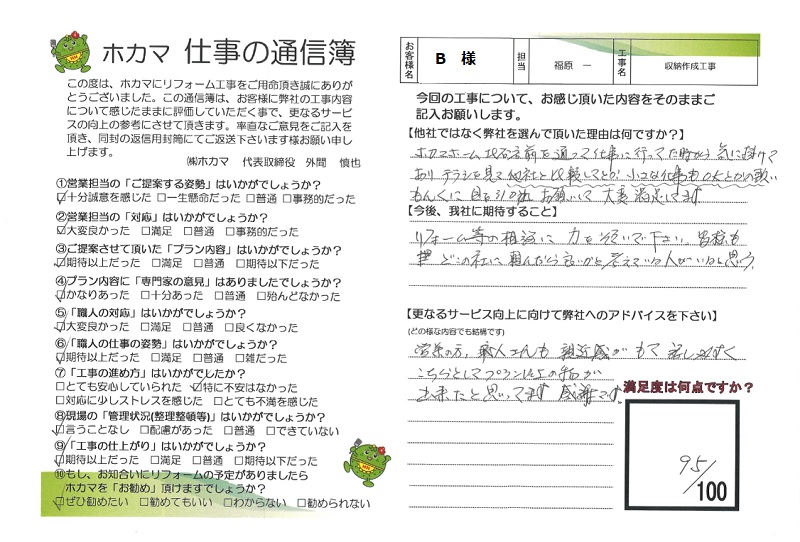 ホカマ 仕事の通信簿
この度は、ホカマにリフォーム工事をご用命頂き誠にありが
とうございました。この通信簿は、お客様に弊社の工事内容
について感じたままに評価していただく事で、更なるサービ
スの向上の参考にさせて頂きます。率直なご意見をご記入を
頂き、同封の返信用封筒にてご返送下さいます様お願い申し
上げます。
㈱ホカマ 代表取締役 外間 慎也
①営業担当の「ご提案する姿勢」はいかがでしょうか?
☑十分誠意を感じた □一生懸命だった □普通 □事務的だった
②営業担当の「対応」はいかがでしょうか?
☑大変良かった □満足 □普通 □事務的だった
③ご提案させて頂いた「プラン内容」はいかがでしょうか?
☑期待以上だった □満足 □普通 □期待以下だった
④プラン内容に「専門家の意見」はありましたでしょうか?
☑かなりあった □十分あった □普通 □殆んどなかった
⑤「職人の対応」はいかがでしょうか?
☑大変良かった □満足 □普通 □良くなかった
⑥「職人の仕事の姿勢」はいかがでしょうか?
☑期待以上だった □満足 □普通 □雑だった
⑦「工事の進め方」はいかがでしたでしょうか?
□とても安心していられた ☑特に不安はなかった
□対応に少しストレスを感じた □とても不満を感じた
⑧現場の「管理状況(整理整頓等)」はいかがでしょうか?
☑言うことなし □配慮があった □普通 □できていない
⑨「工事の仕上がり」はいかがでしょうか?
☑期待以上だった □満足 □普通 □期待以下だった
⑩もし、お知合いにリフォームの予定がありましたら
ホカマを「お勧め」頂けますでしょうか?
☑ぜひ勧めたい □勧めてもいい □わからない □勧められない
お客様名 B 様 担当 福原 一 工事名 収納作成工事
今回の工事について、お感じ頂いた内容をそのままご
記入お願いします。
【他社ではなく弊社を選んで頂いた理由は何ですか?】
ホカマホーム 前を通って仕事に行ってた時から 気に掛けて
おり チラシを見て他社と比較してとか 小さな仕事もOKとかの歌い
もんくに 目を引かれ お願いして 大変満足してます
【今後、我社に期待すること】
リフォーム等の相談に 力を注いで下さい。皆様も
どこの社に頼んだら良いかと考えている人がいると思う。
【更なるサービス向上に向けて弊社へのアドバイスを下さい】
(どの様な内容でも結構です)
営業の方、職人さんも 親近感が もて 話しやすく
こちらとしてプラン以上の物が
出来たと思ってます 感謝です。
満足度は何点ですか?
95/100